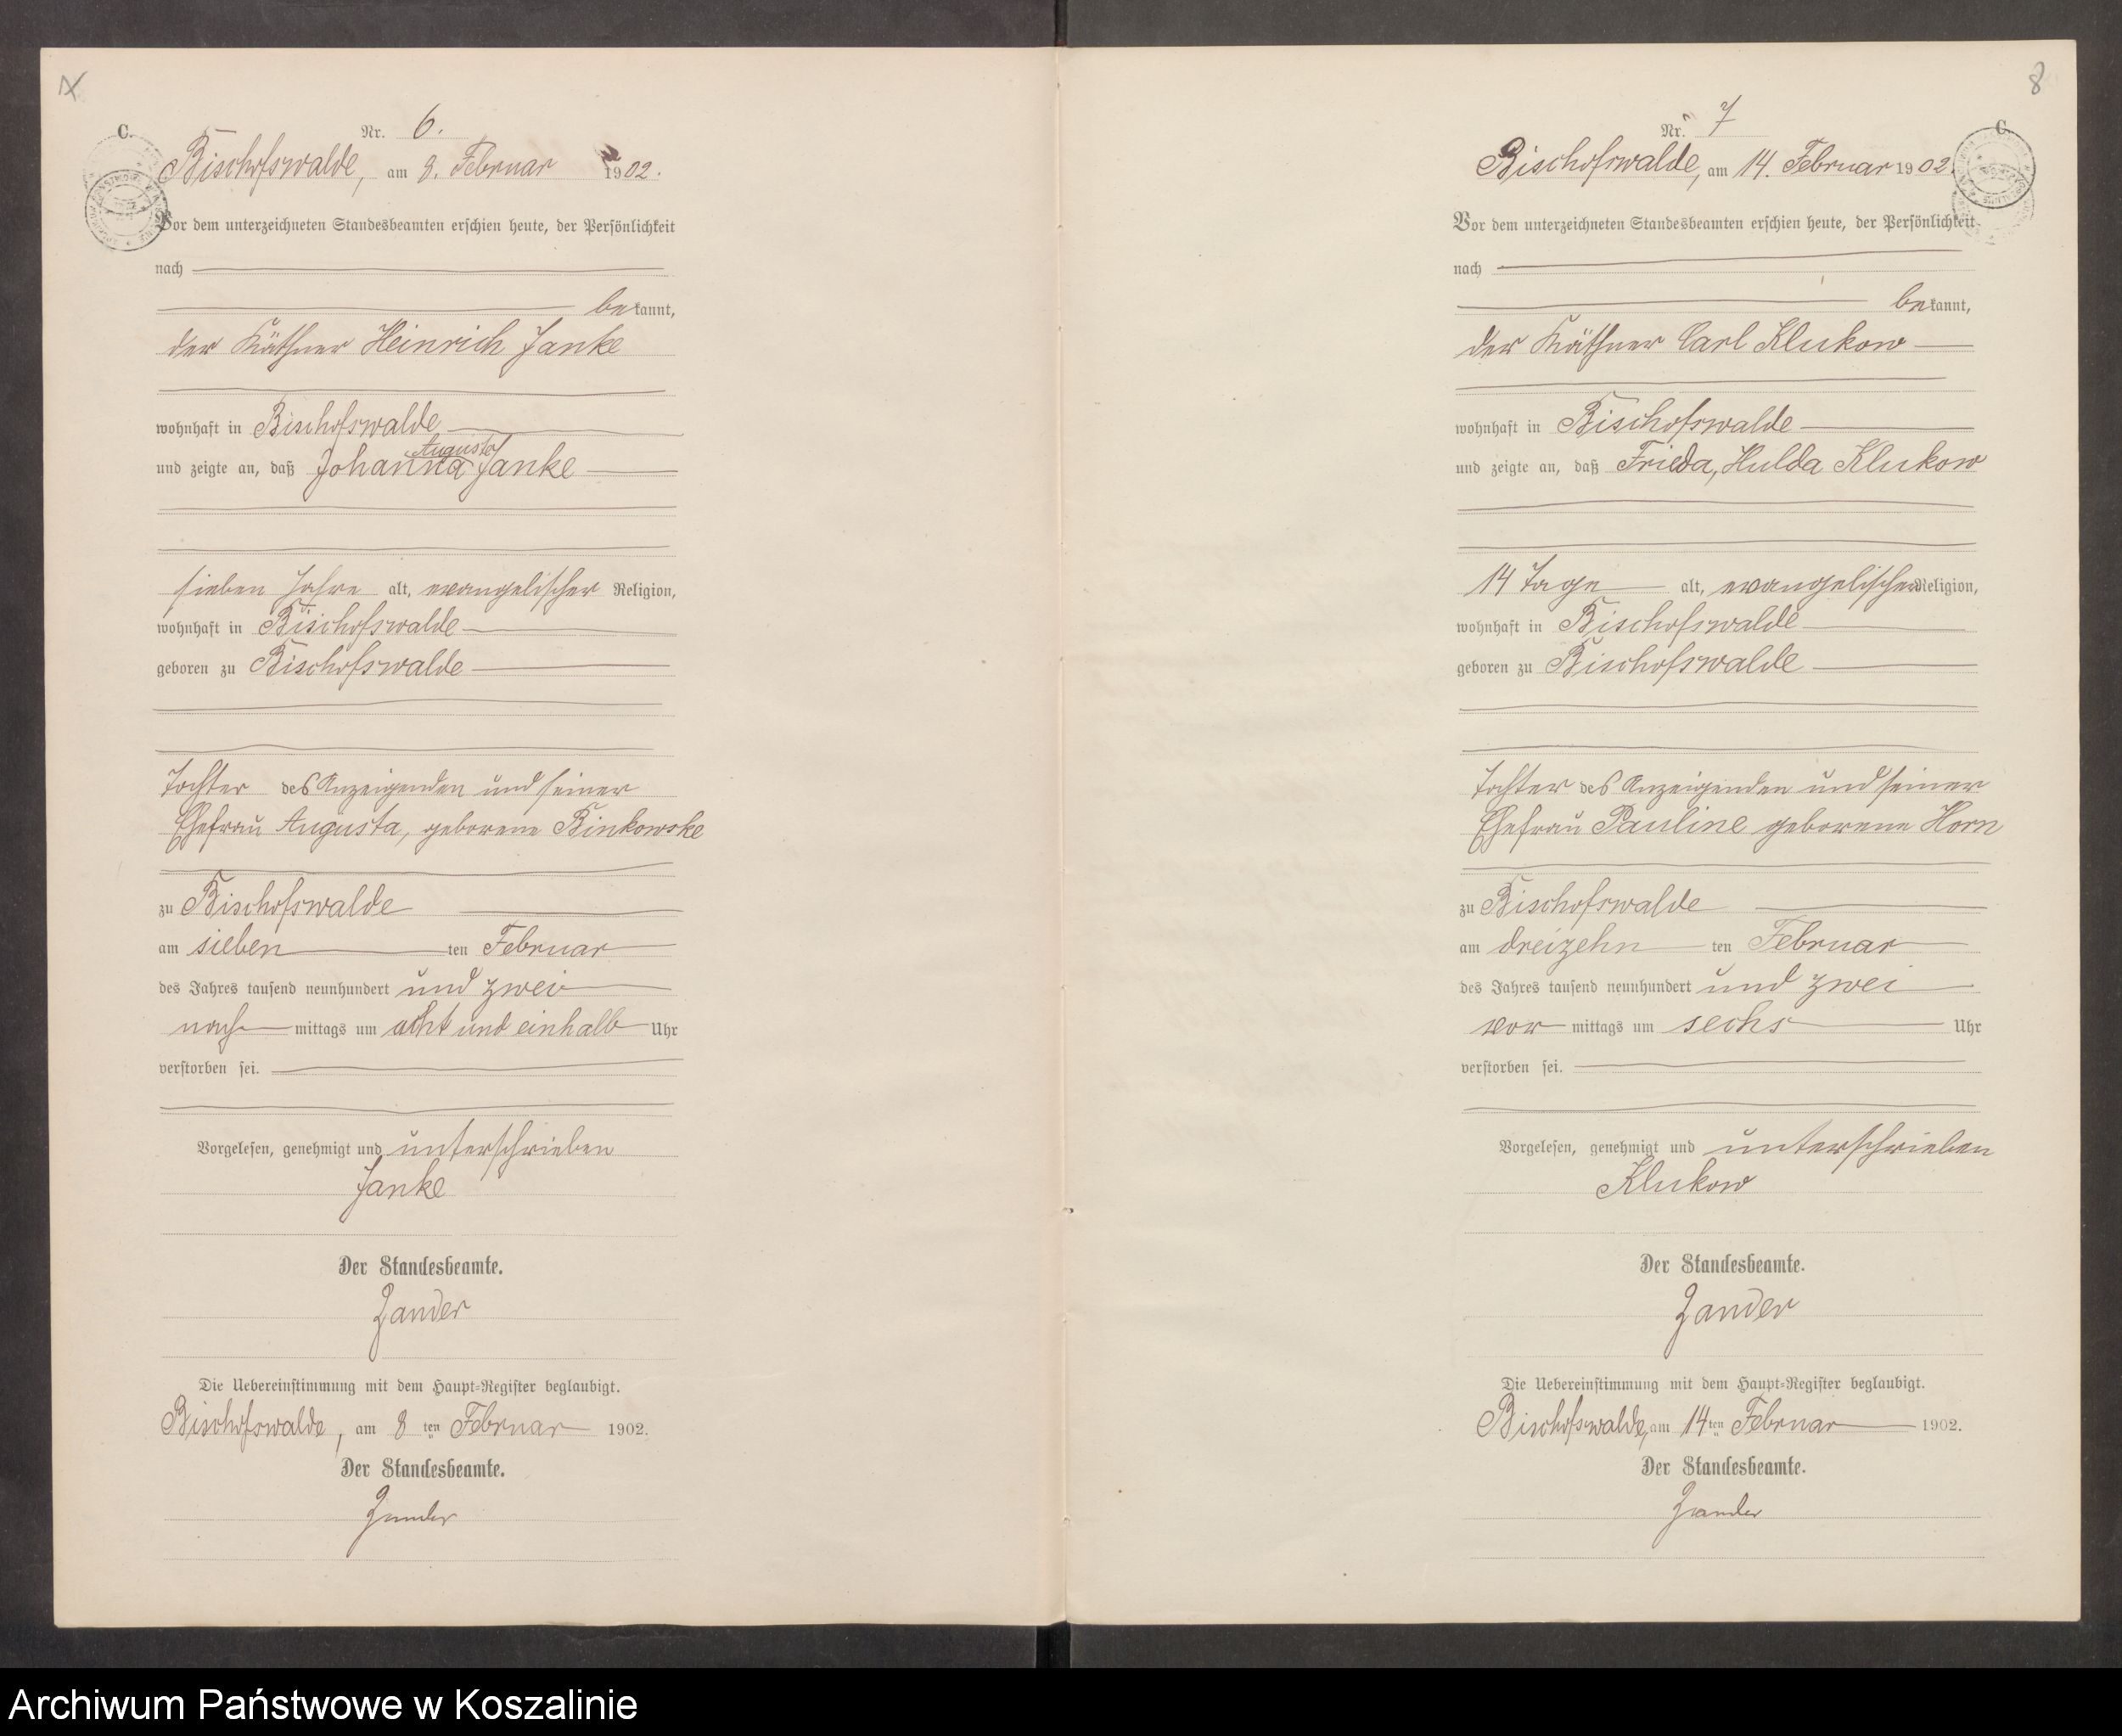 C.
Nr. 6.
Bischofswalde, am 8. Februar 1902.
Vor dem unterzeichneten Standesbeamten erschien heute, der Persönlichkeit
nach
bekannt,
der Käthner Heinrich Janke
wohnhaft in Bischofswalde
Augusta
und zeigte an, daß Johanna Janke
sieben Jahre alt, evangelischer Religion,
wohnhaft in Bischofswalde
geboren zu Bischofswalde
Tochter des Anzeigenden und seiner
Ehefrau Augusta, geborene Binkowske
zu Bischofswalde
am sieben ten Februar
des Jahres tausend neunhundert und zwei
nach mittags um acht und einhalb Uhr
verstorben sei.
Vorgelesen, genehmigt und unterschrieben
Janke
Der Standesbeamte.
Zander
Die Uebereinstimmung mit dem Haupt-Register beglaubigt.
Bischofswalde, am 8 ten Februar 1902.
Der Standesbeamte.
Zander
8
C.
Nr. 7
Bischofswalde, am 14. Februar 1902
Vor dem unterzeichneten Standesbeamten erschien heute, der Persönlichkeit
nach
bekannt,
der Käthner Carl Klukow
wohnhaft in Bischofswalde
und zeigte an, daß Frieda, Hulda Klukow
14 Tage alt, evangelischer Religion,
wohnhaft in Bischofswalde
geboren zu Bischofswalde
Tochter des Anzeigenden und seiner
Ehefrau Pauline geborene Horn
zu Bischofswalde
am dreizehn ten Februar
des Jahres tausend neunhundert und zwei
vor mittags um sechs Uhr
verstorben sei.
Vorgelesen, genehmigt und unterschrieben
Klukow
Der Standesbeamte.
Zander
Die Uebereinstimmung mit dem Haupt-Register beglaubigt.
Bischofswalde, am 14ten Februar 1902.
Der Standesbeamte.
Zander
Archiwum Państwowe w Koszalinie